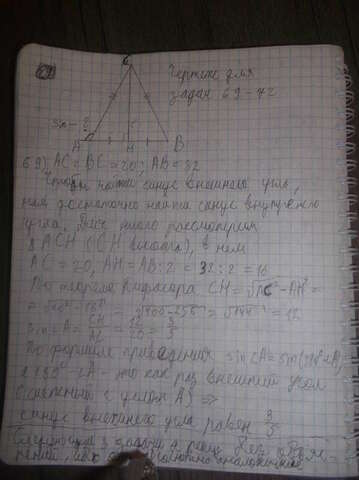 69
C
Чертеж для
задач 69-72
sin - ?
A H B
69) AC = BC = 20; AB = 32
Чтобы найти синус внешнего угла,
нам достаточно найти синус внутреннего
угла. Для этого рассмотрим
△ ACH (CH высота), в нем
AC = 20, AH = AB : 2 = 32 : 2 = 16
По теореме Пифагора CH = √AC² - AH² =
= √20² - 16² = √400 - 256 = √144 = 12
Sin∠A = CH/AC = 12/20 = 3/5
По формуле приведения sin∠A = sin(180°-∠A)
а 180° - ∠A - это как раз внешний угол
(смежный с углом A) ⇒
синус внешнего угла равен 3/5
Следующие 3 задачи я решу без объяс-
нений, абсолютно аналогичные